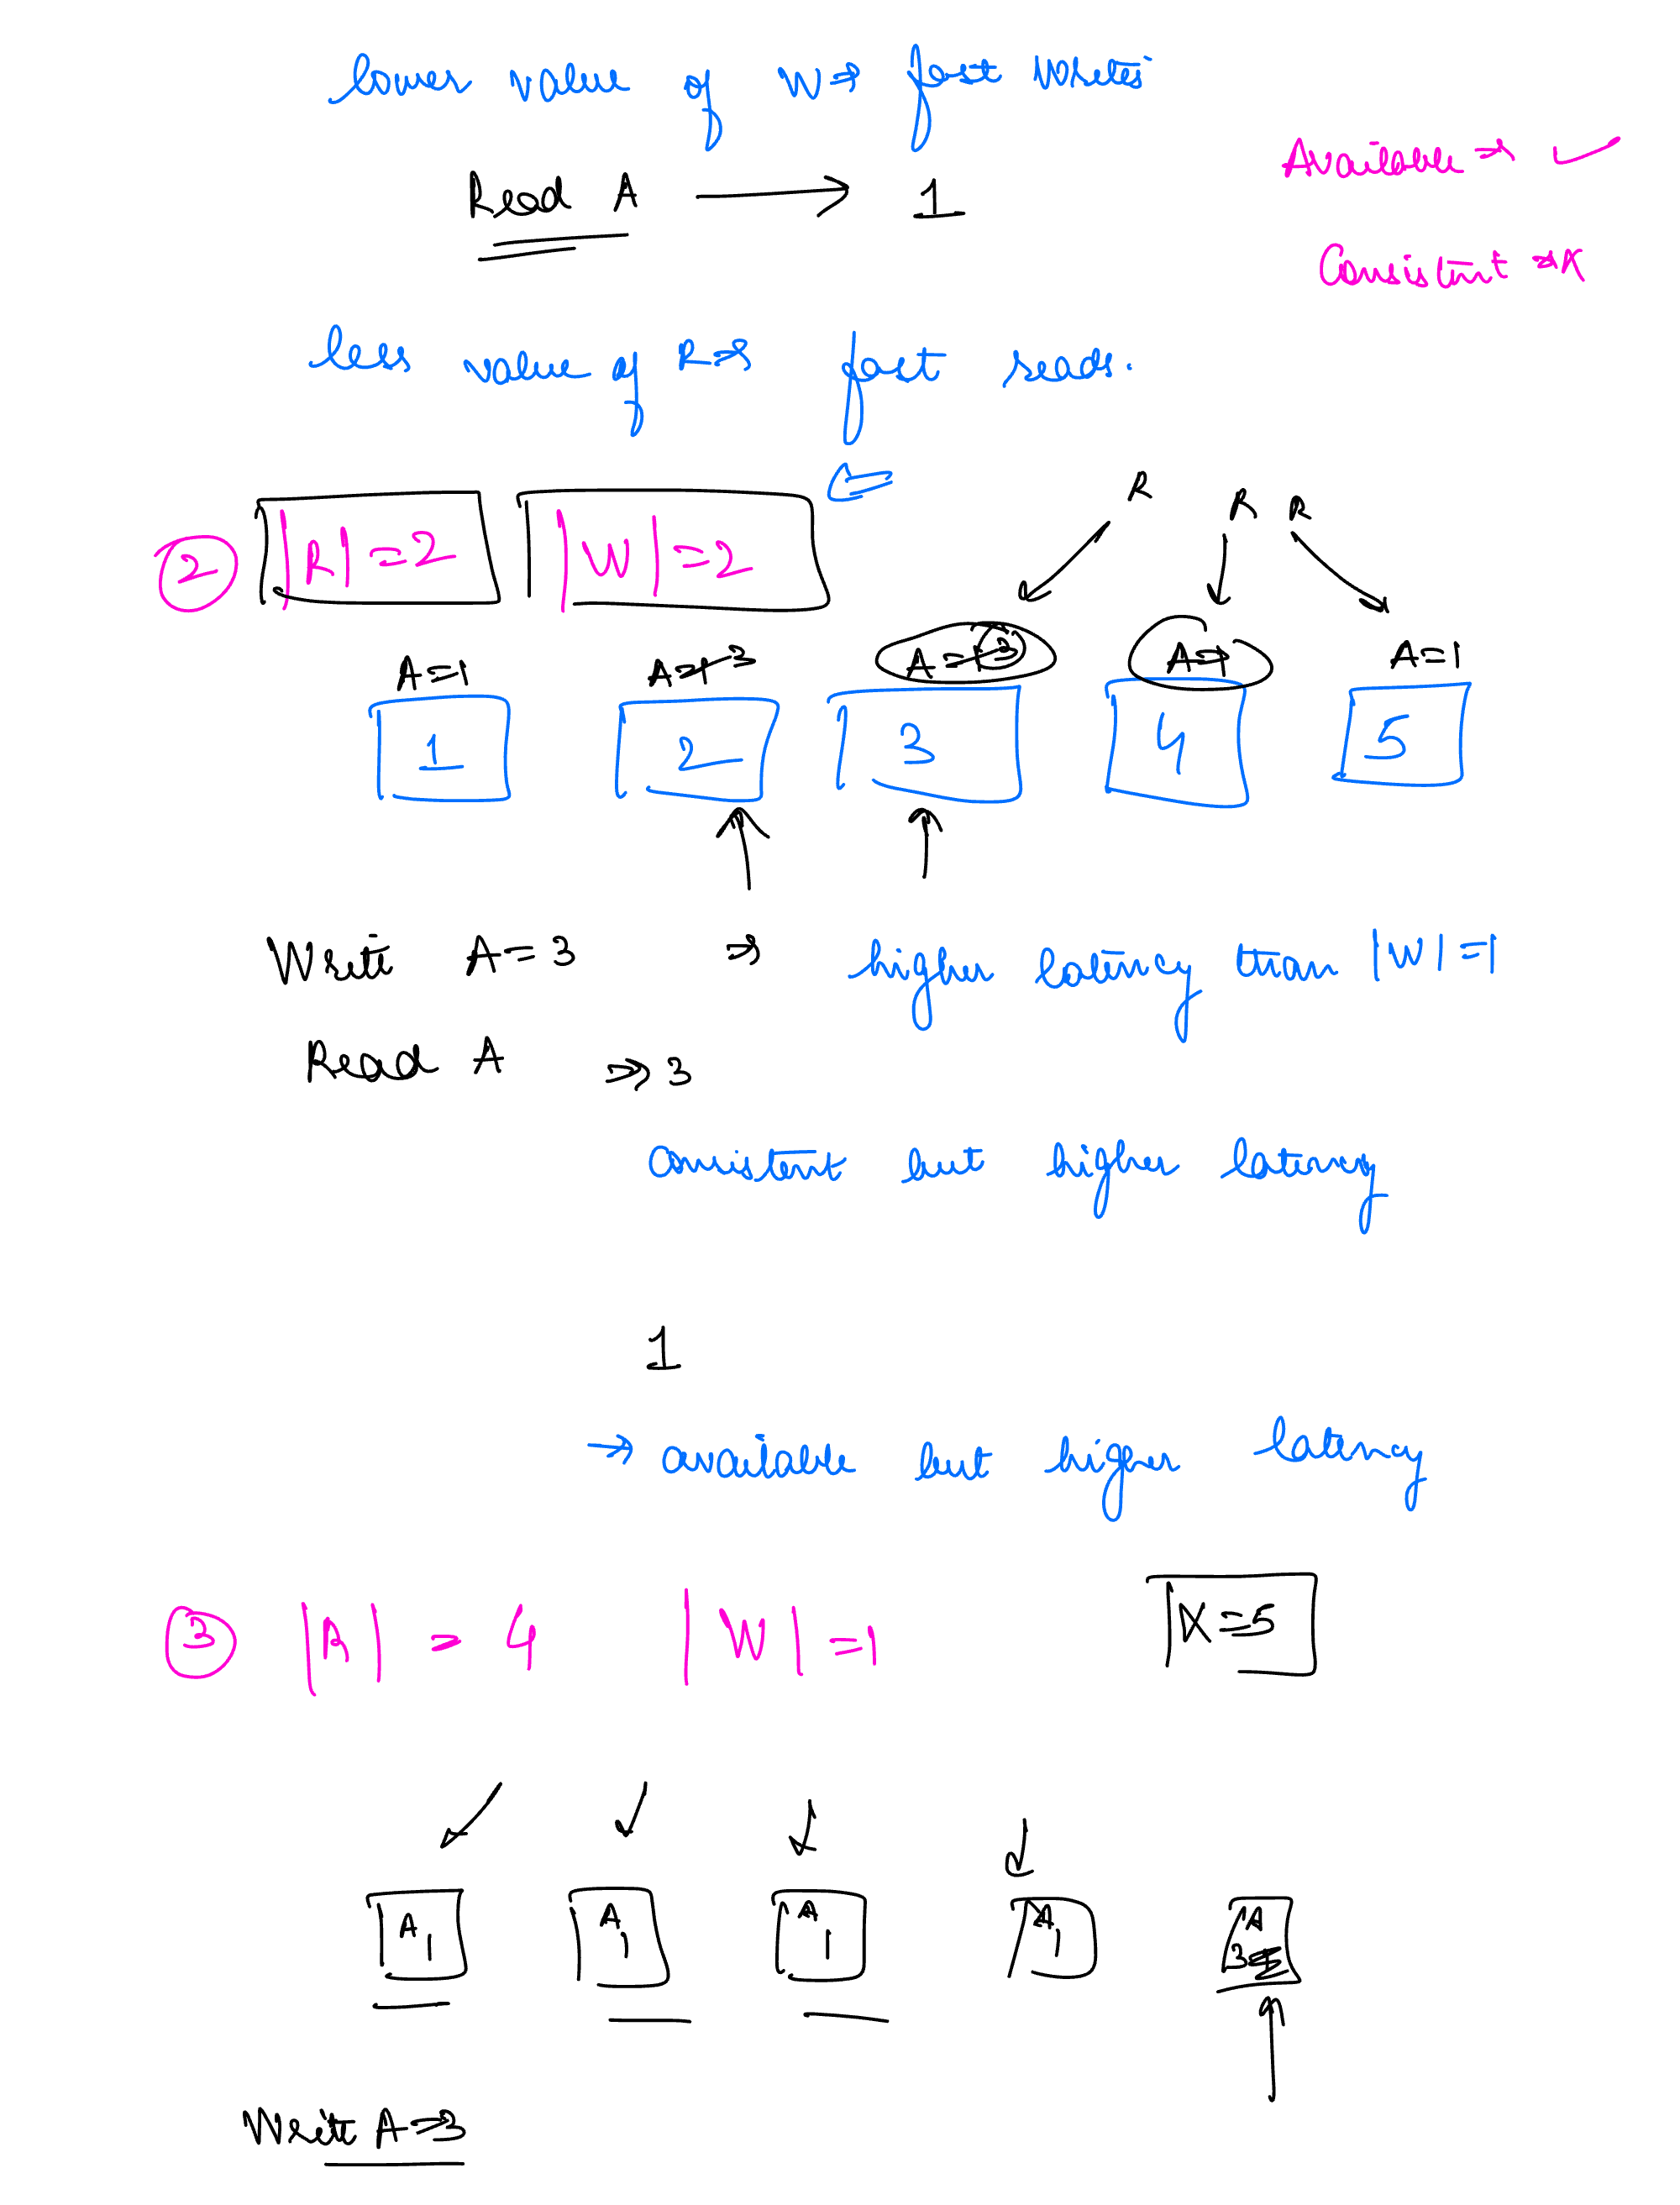 lower value of W⇒ fast writes
Available ⇒ ✓
Read A → 1
Consistent ⇒ X
less value of R⇒ fast reads.
② |R|=2 |W|=2
R R R
A=1 A=1 3 A=1 3 A=1 A=1
1 2 3 4 5
Write A=3 ⇒ higher latency than |W|=1
Read A ⇒ 3
Consistent but higher latency
1
→ available but higher latency
③ |R| = 4 |W|=1 X=5
A A A A A
1 1 1 1 3
Write A⇒3